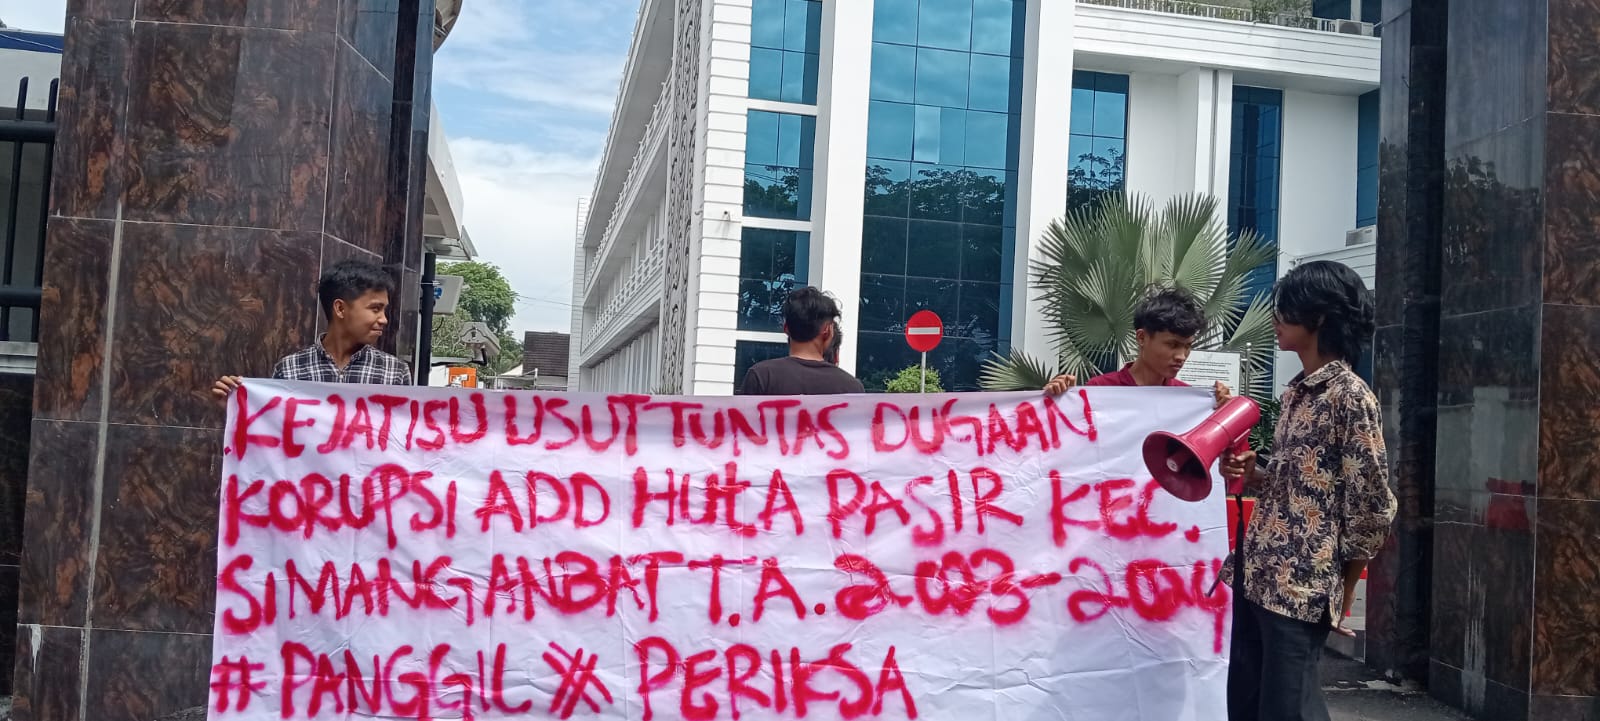 KEJATISU USUT TUNTAS DUGAAN
KORUPSI ADD HUtA PASIR KEC.
SIMANGANBAT T.A. 2023-2024
#PANGGIL X PERIKSA